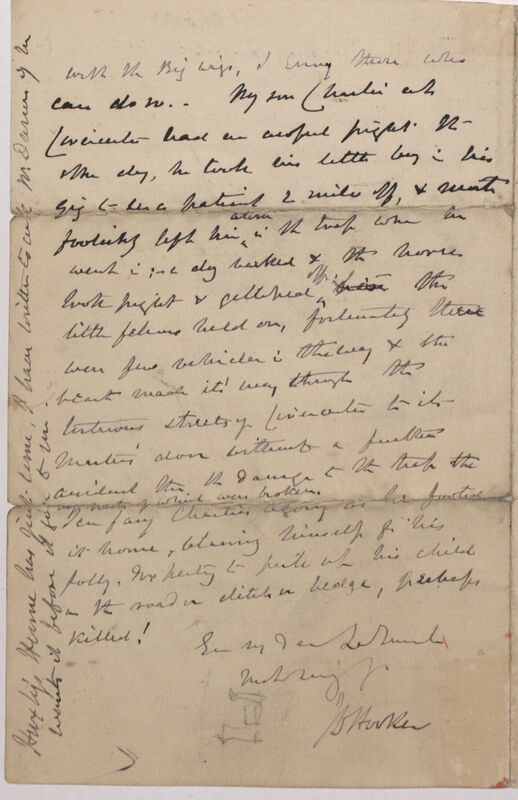 with the Big wigs, I envy those who
can do so.. My son Charlie at
Cirencester had an awful fright the
other day, he took his little boy in his
gig to see a patient 2 miles off, & most
foolishly left him alone in the trap when he
went in; a dog barked & the horse
took fright & galloped off; the
little fellow held on, fortunately there
were few vehicles in the way & the
beast made its way through the
tortuous streets of Cirencester to its
Master's door without a further
accident than the damage to the trap the
of which were broken.
I can fancy Charlie's agony as he footed
it home, blaming himself for his
folly. Expecting to pick up his child
in the road or ditch or hedge, perhaps
killed!
Ever my dear La Touche
Most sincy yrs
JDHooker
Huxley's Hume has just come, I have written to ask Mr Darwin if he
wants it before it goes to you.